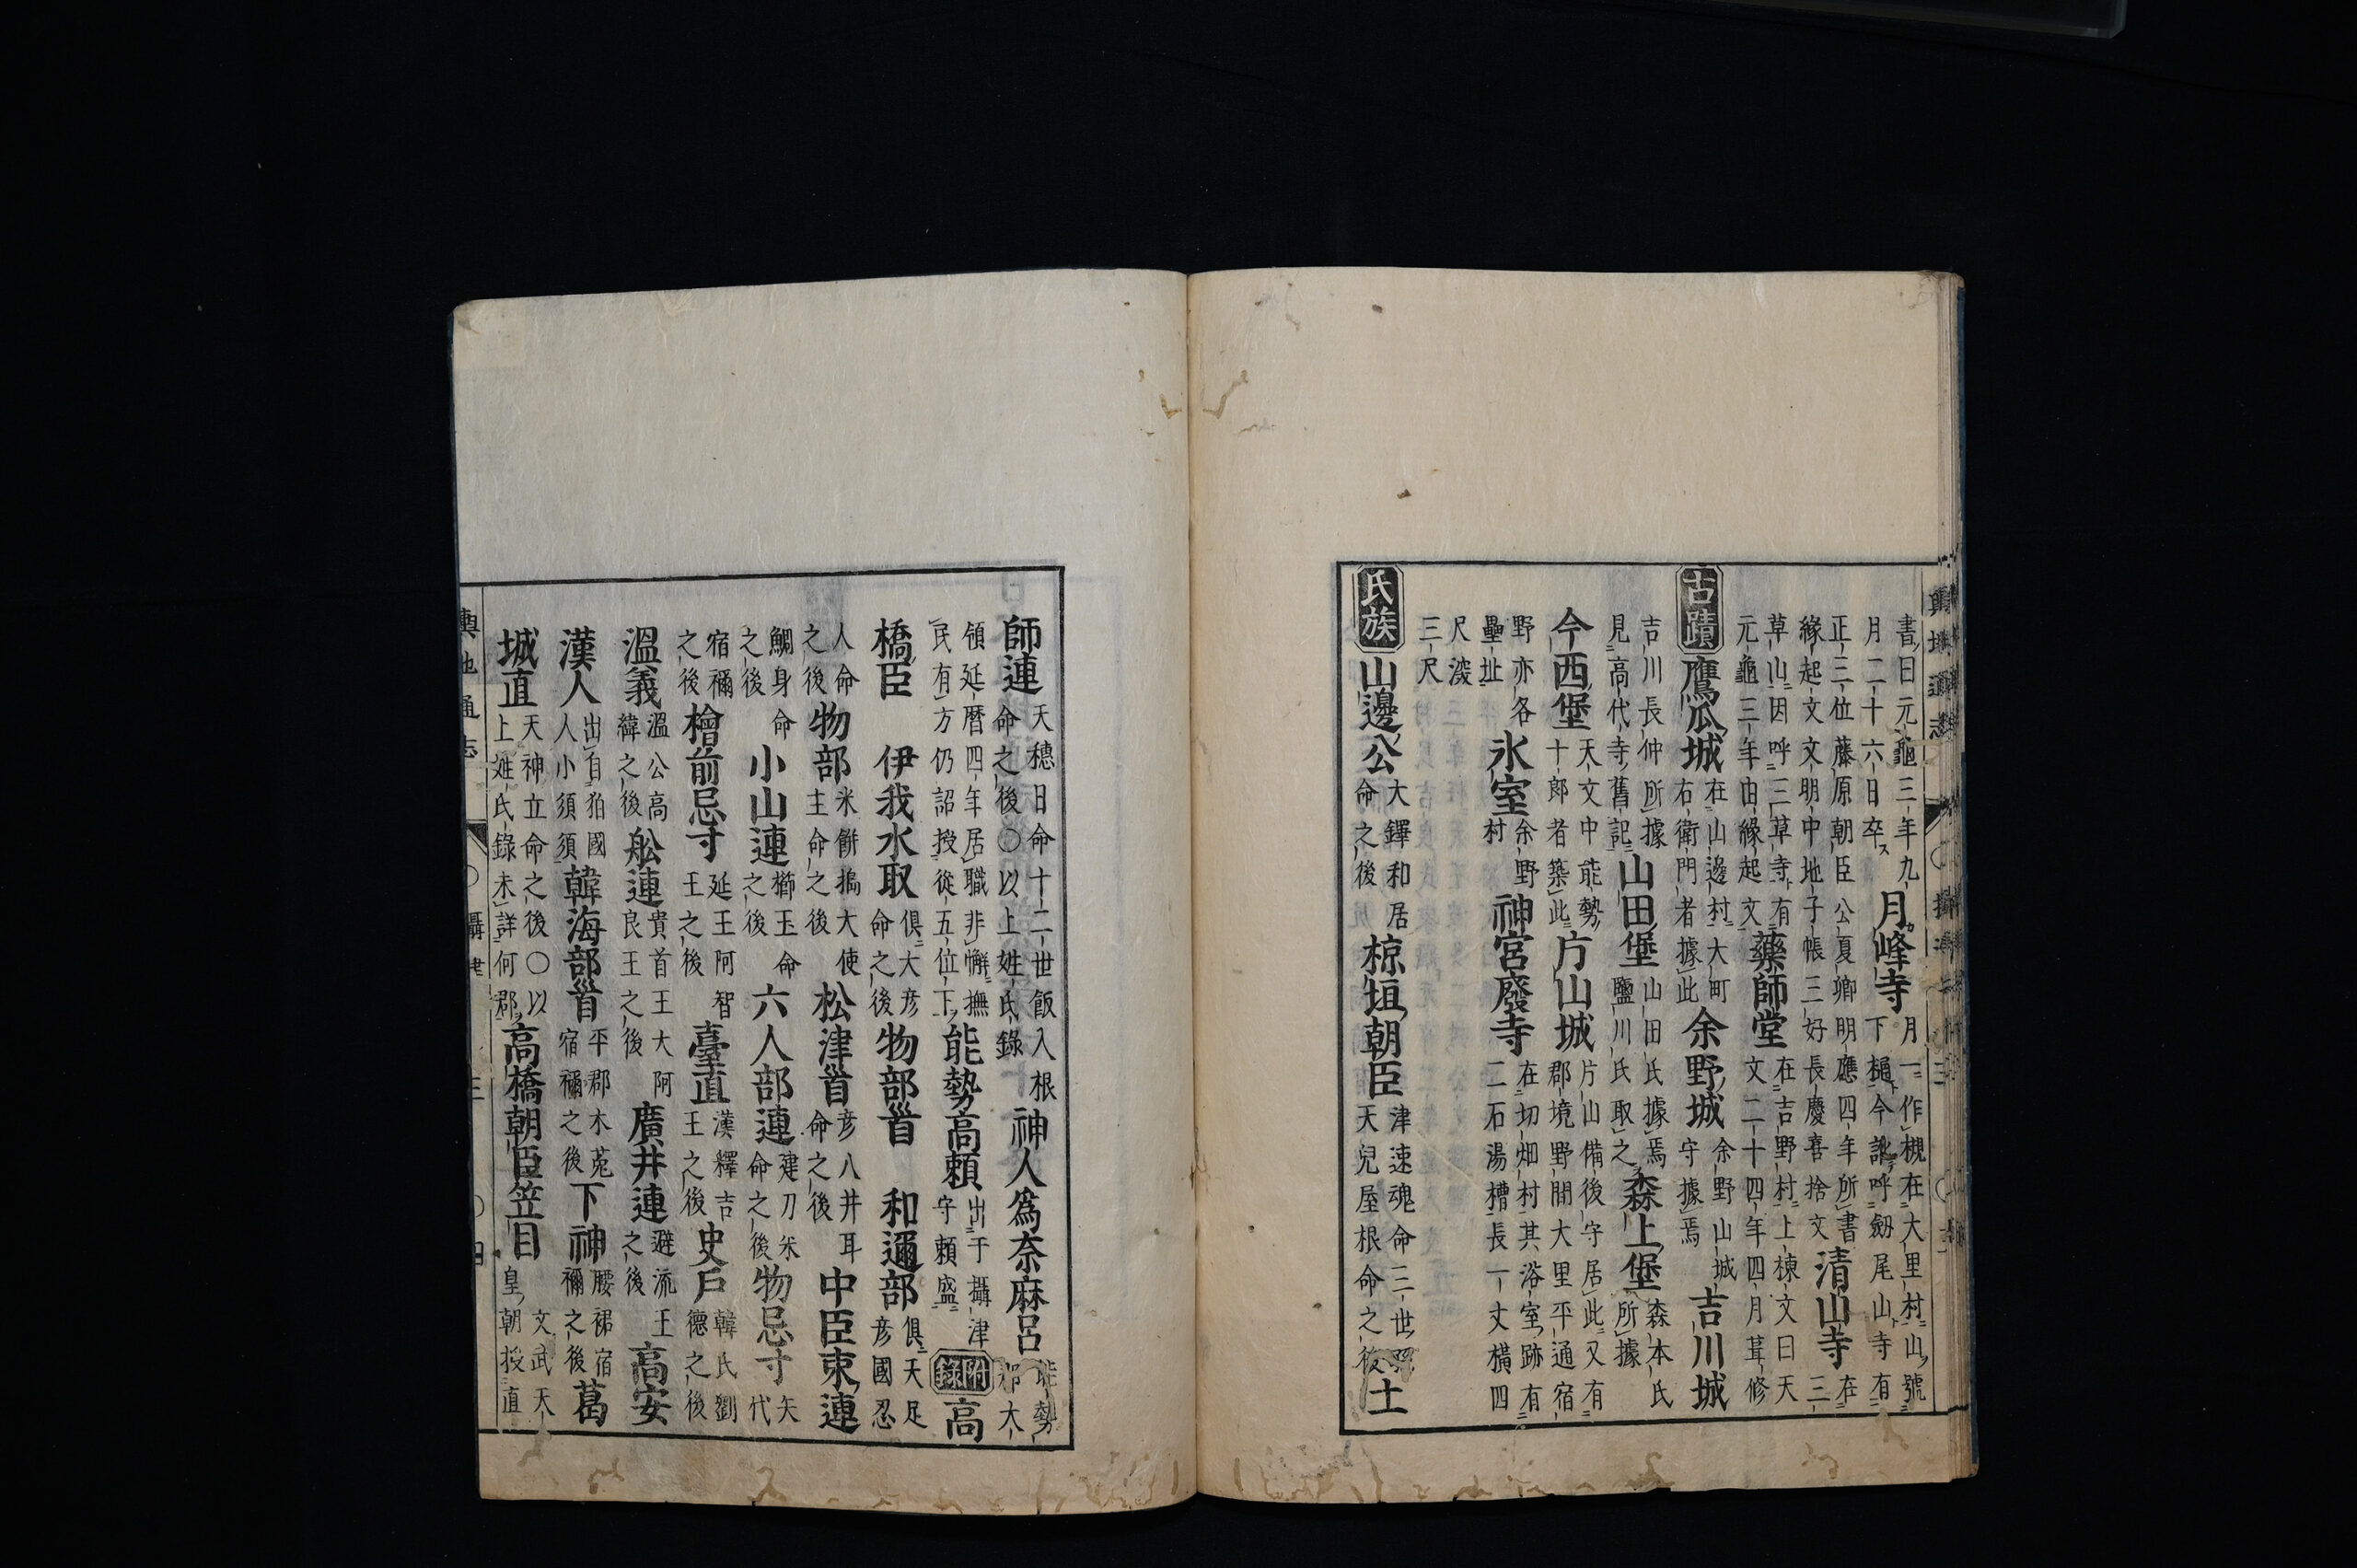 書曰元龜三年九月二十六日卒 月峰寺 月一作槻在大里村山號下樋今訛呼劔尾山寺有
正三位藤原朝臣公夏卿明應四年所書緣起文文明中地子帳三好長慶喜捨文 清山寺 在三
草山因呼三草寺有元龜三年由緣起文 藥師堂 在吉野村上棟文曰天文二十四年四月葺修
古蹟 鷹瓜城 在山邊村大町右衛門者據此 余野城 余野山城守據焉 吉川城
吉川長仲所據見高代寺舊記 山田堡 山田氏據焉鹽川氏取之 森上堡 森本氏所據
今西堡 天文中能勢十郎者築此 片山城 片山備後守居此又有郡境野間大里平通宿
野亦各壘址 氷室 余野村 神宮廢寺 在切畑村其浴室跡有二石湯槽長一丈橫四
尺濲三尺
氏族 山邊公 大鐸和居命之後 椋垣朝臣 津速魂命三世天兒屋根命之後 土
師連 天穗日命十二世飯入根命之後〇以上姓氏錄 神人爲奈麻呂 能勢郡大
領延曆四年居職非懈撫民有方仍詔授從五位下 能勢高賴 出于攝津守賴盛 附錄 高
橋臣 伊我水取 俱大彥命之後 物部首 和邇部 俱天足彥國忍
人命之後 物部 米餅搗大使主命之後 松津首 彥八井耳命之後 中臣束連
鯛身命之後 小山連 櫛玉命之後 六人部連 建刀米命之後 物忌寸 矢代
宿禰之後 檜前忌寸 延王阿智王之後 臺直 漢釋吉王之後 史戶 韓氏劉德之後
溫義 溫公高緯之後 舩連 貴首王大阿良王之後 廣井連 避流王之後 高安
漢人 出自狛國人小須須 韓海部首 平郡木菟宿禰之後 下神 腰裙宿禰之後 葛
城直 天神立命之後〇以上姓氏錄未詳何郡 高橋朝臣笠目 文武天皇朝授直